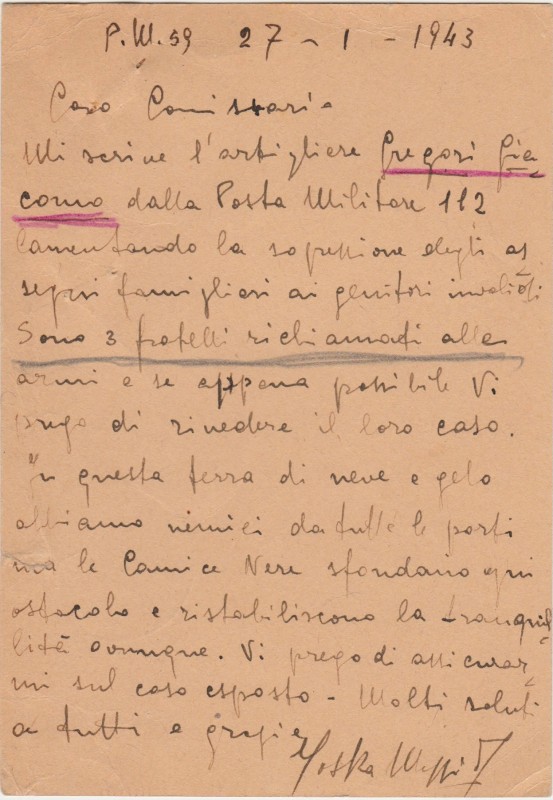 P.M. 59 27 - 1 - 1943
Caro Comissario
Mi scrive l'artigliere Gregori Gia
como dalla Posta Militare 112
lamentando la sopressione degli as
segni famigliari ai genitori invalidi
Sono 3 fratelli richiamati alle
armi e se appena possibile Vi
prego di rivedere il loro caso.
In questa terra di neve e gelo
abbiamo nemici da tutte le parti
ma le Camice Nere sfondano ogni
ostacolo e ristabiliscono la tranquil
lità ovunque. Vi prego di assicurar
mi sul caso esposto - Molti saluti
a tutti e grazie